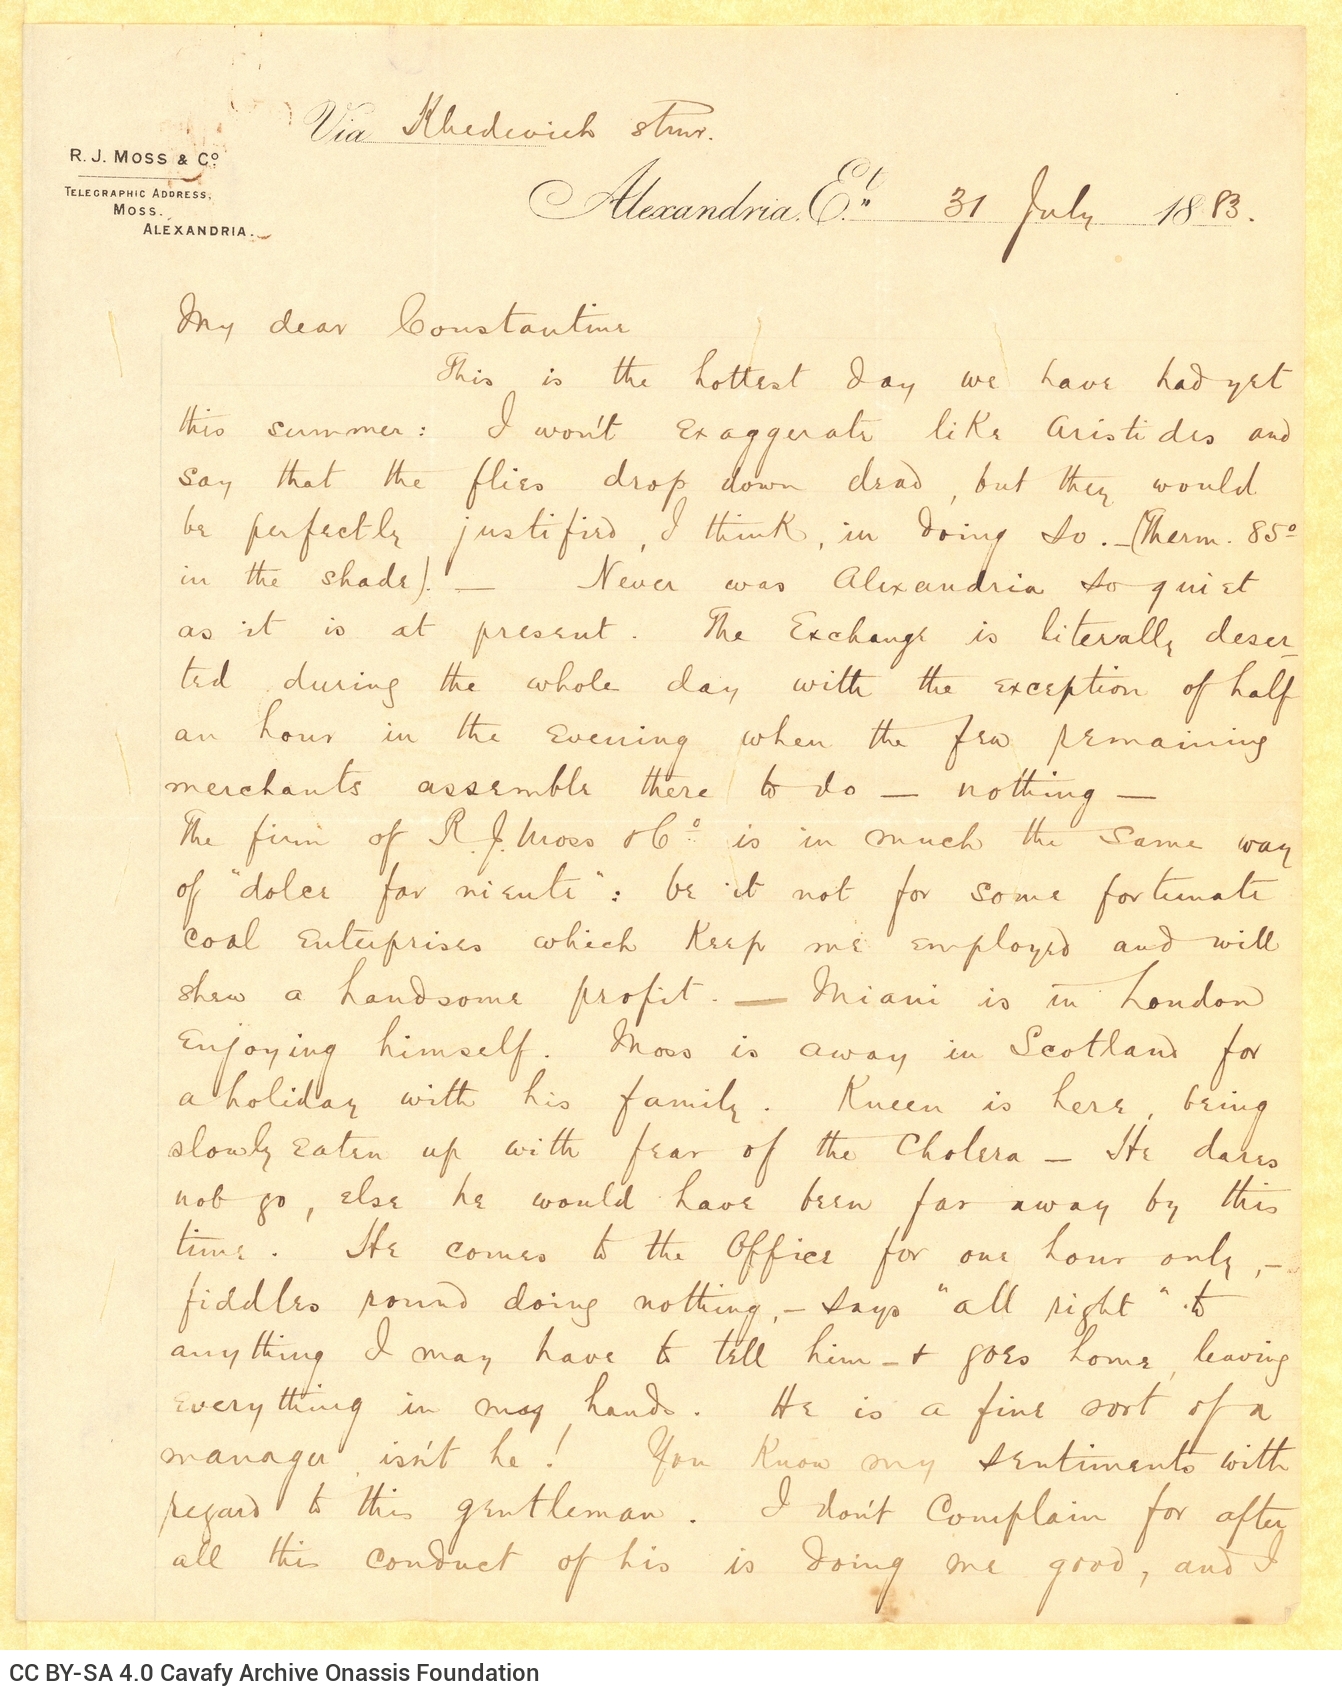 Via Khedivieh stmr.
R. J. MOSS & Cº
TELEGRAPHIC ADDRESS,
MOSS.
ALEXANDRIA.
Alexandria, Et. 31 July 1883.
My dear Constantine
This is the hottest day we have had yet
this summer: I won't exaggerate like Aristides and
say that the flies drop down dead, but they would
be perfectly justified, I think, in doing so. — (Therm. 85º
in the shade). — Never was Alexandria so quiet
as it is at present. The Exchange is literally deser-
ted during the whole day with the exception of half
an hour in the evening when the few remaining
merchants assemble there to do — nothing —
The firm of R. J. Moss & Cº is in much the same way
of "dolce far niente": be it not for some fortunate
coal enterprises which keep me employed and will
shew a handsome profit. — Miani is in London
enjoying himself. Moss is away in Scotland for
a holiday with his family. Kneen is here, being
slowly eaten up with fear of the Cholera — He dares
not go, else he would have been far away by this
time. He comes to the Office for one hour only, —
fiddles round doing nothing, — says "all right" to
anything I may have to tell him — & goes home, leaving
everything in my hands. He is a fine sort of a
manager, isn't he! You know my sentiments with
regard to this gentleman. I don't complain for after
all this conduct of his is doing me good, and I
CC BY-SA 4.0 Cavafy Archive Onassis Foundation